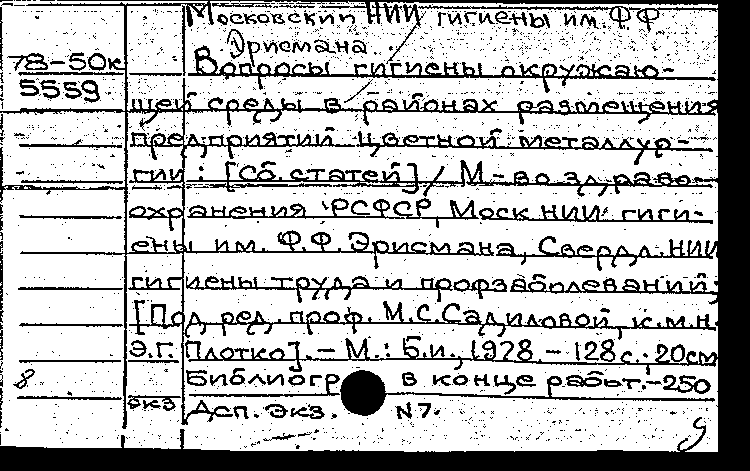 Московский НИИ гигиены им. Ф.Ф
Эрисмана
78-50к
5559
Вопросы гигиены окружаю-
щей среды в районах размещения
предприятий цветной металлур-
гии: [Сб. статей] / М-во здраво-
охранения РСФСР, Моск НИИ гиги-
ены им. Ф.Ф. Эрисмана, Свердл. НИИ
гигиены труда и профзаболеваний;
[Под ред. проф. М.С.Садиловой, к.м.н.
Э.Г. Плотко]. - М.: Б.и., 1978. - 128 с.; 20см
8
Библиогр в конце работ.-250
экз
Деп. экз. N 7.
9